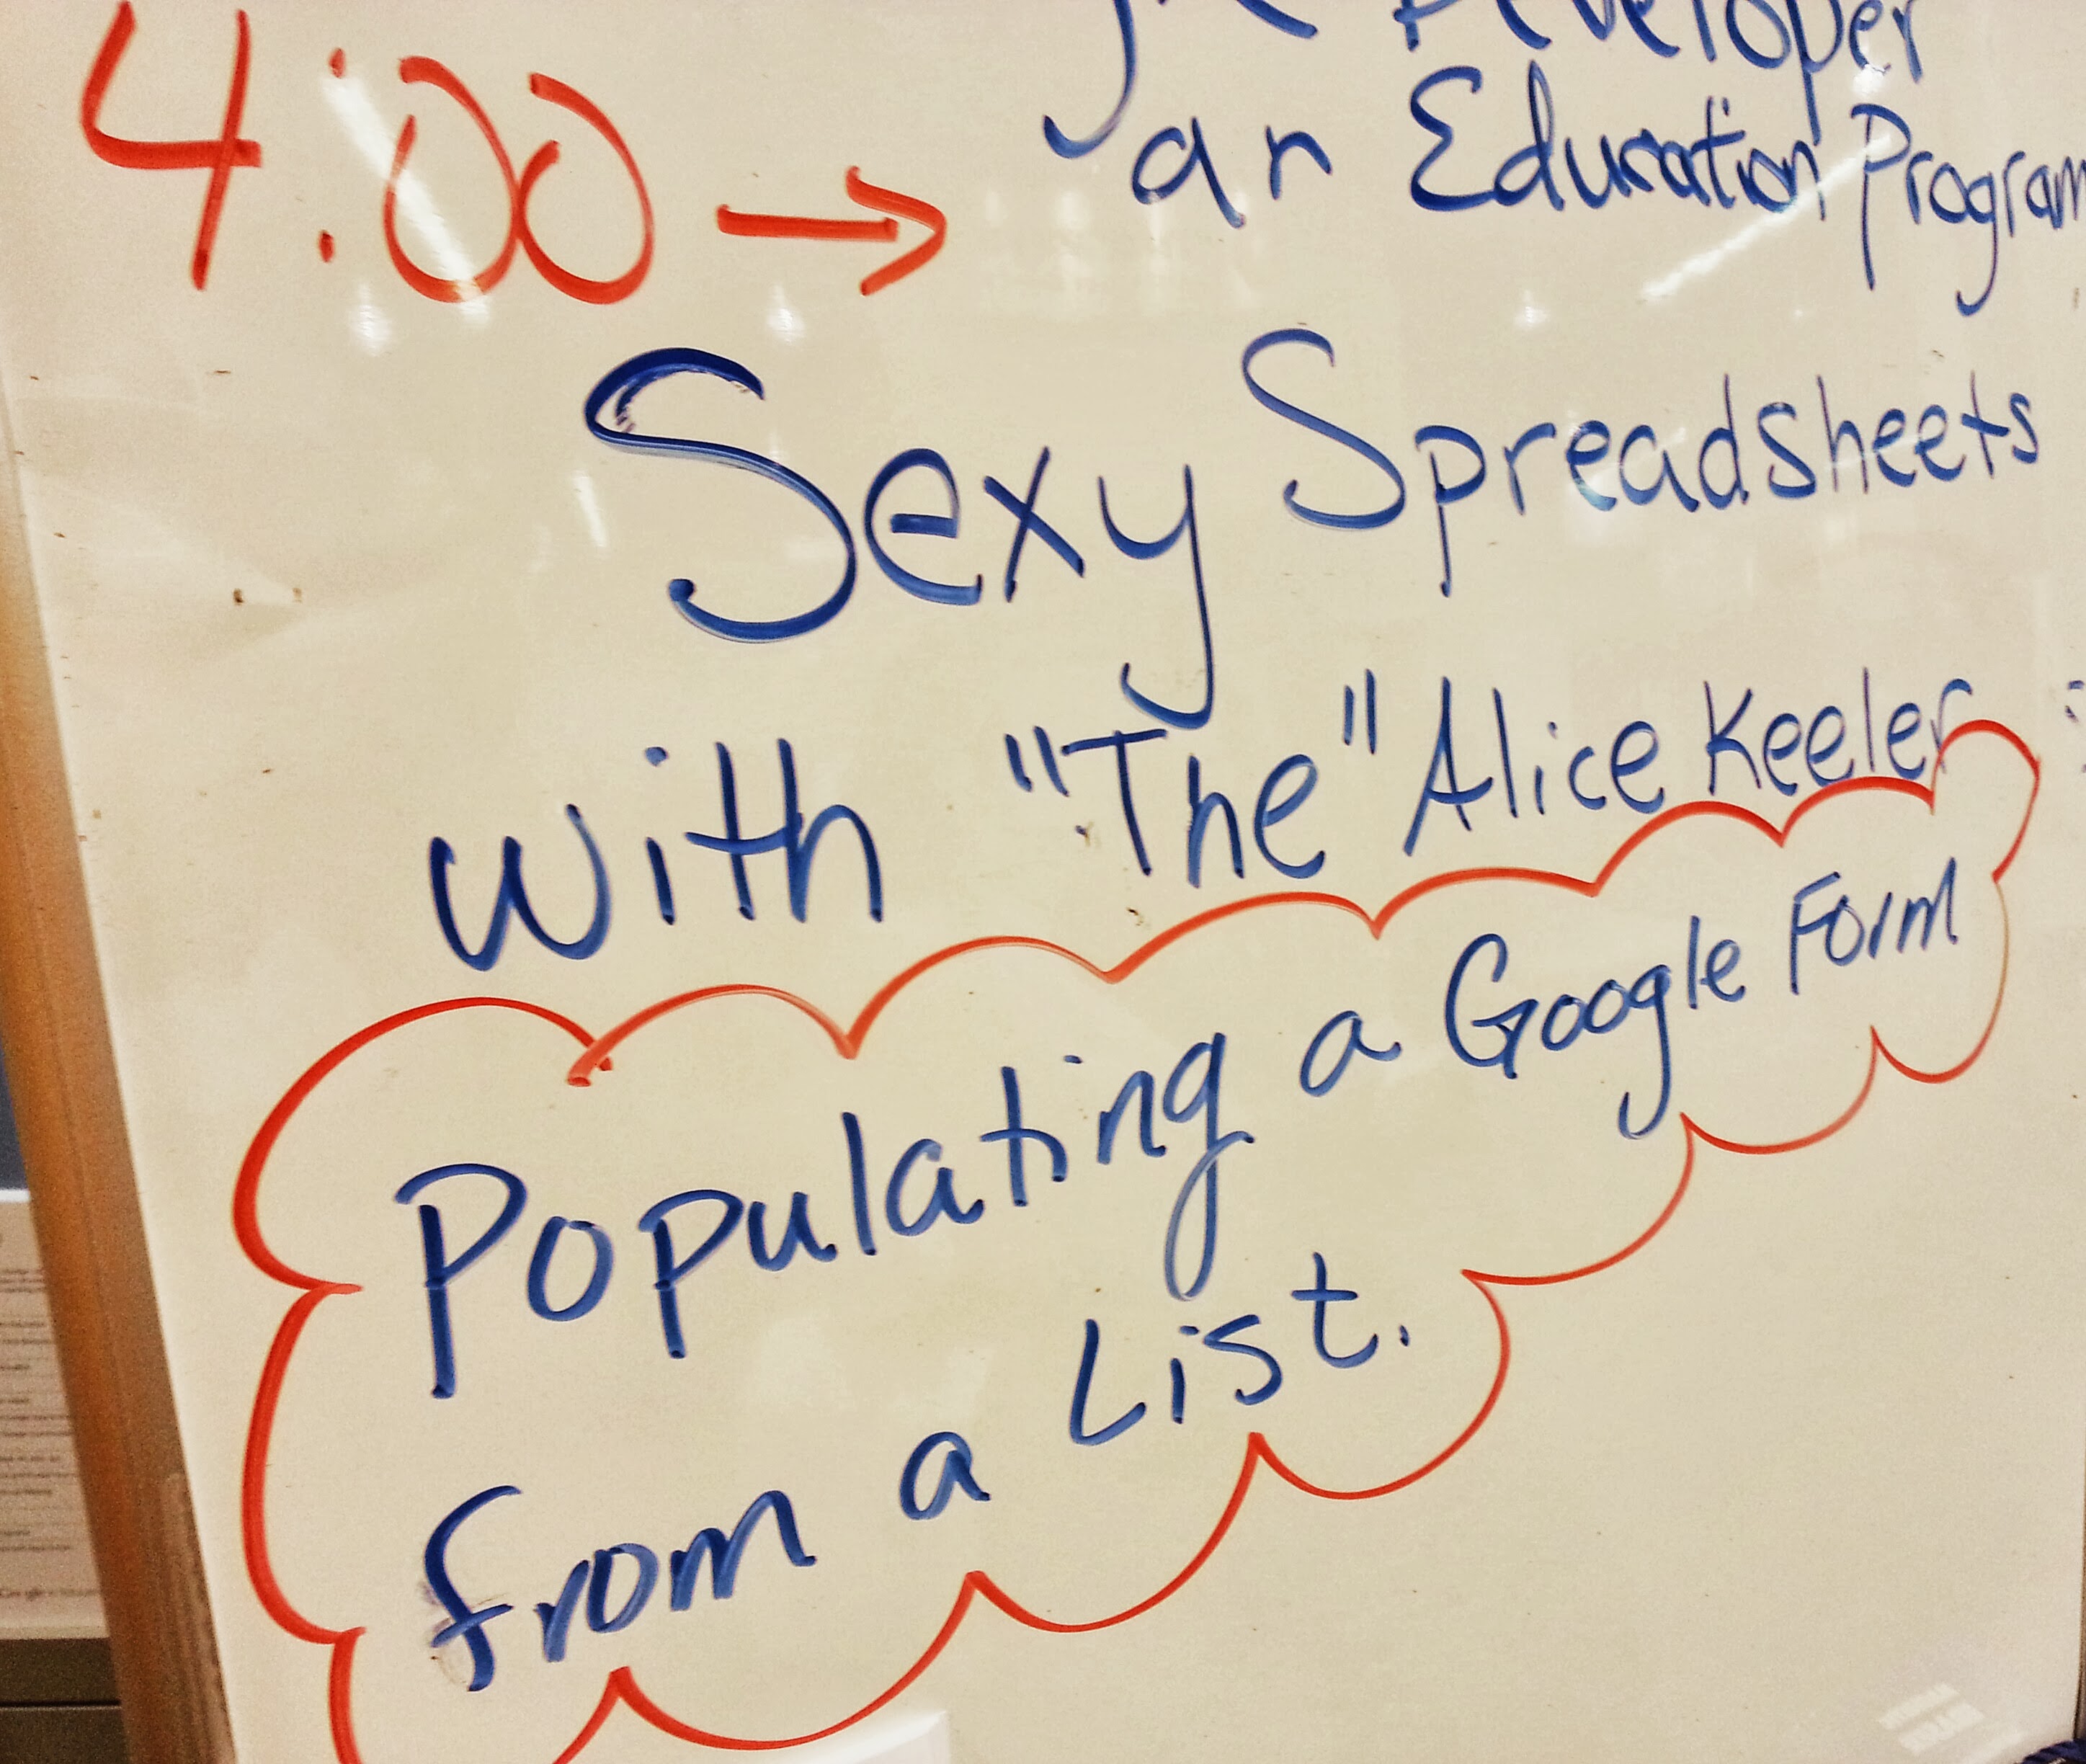 Developer
4:00 → an Education Program
Sexy Spreadsheets
with "The" Alice Keeler
Populating a Google Form
from a List.